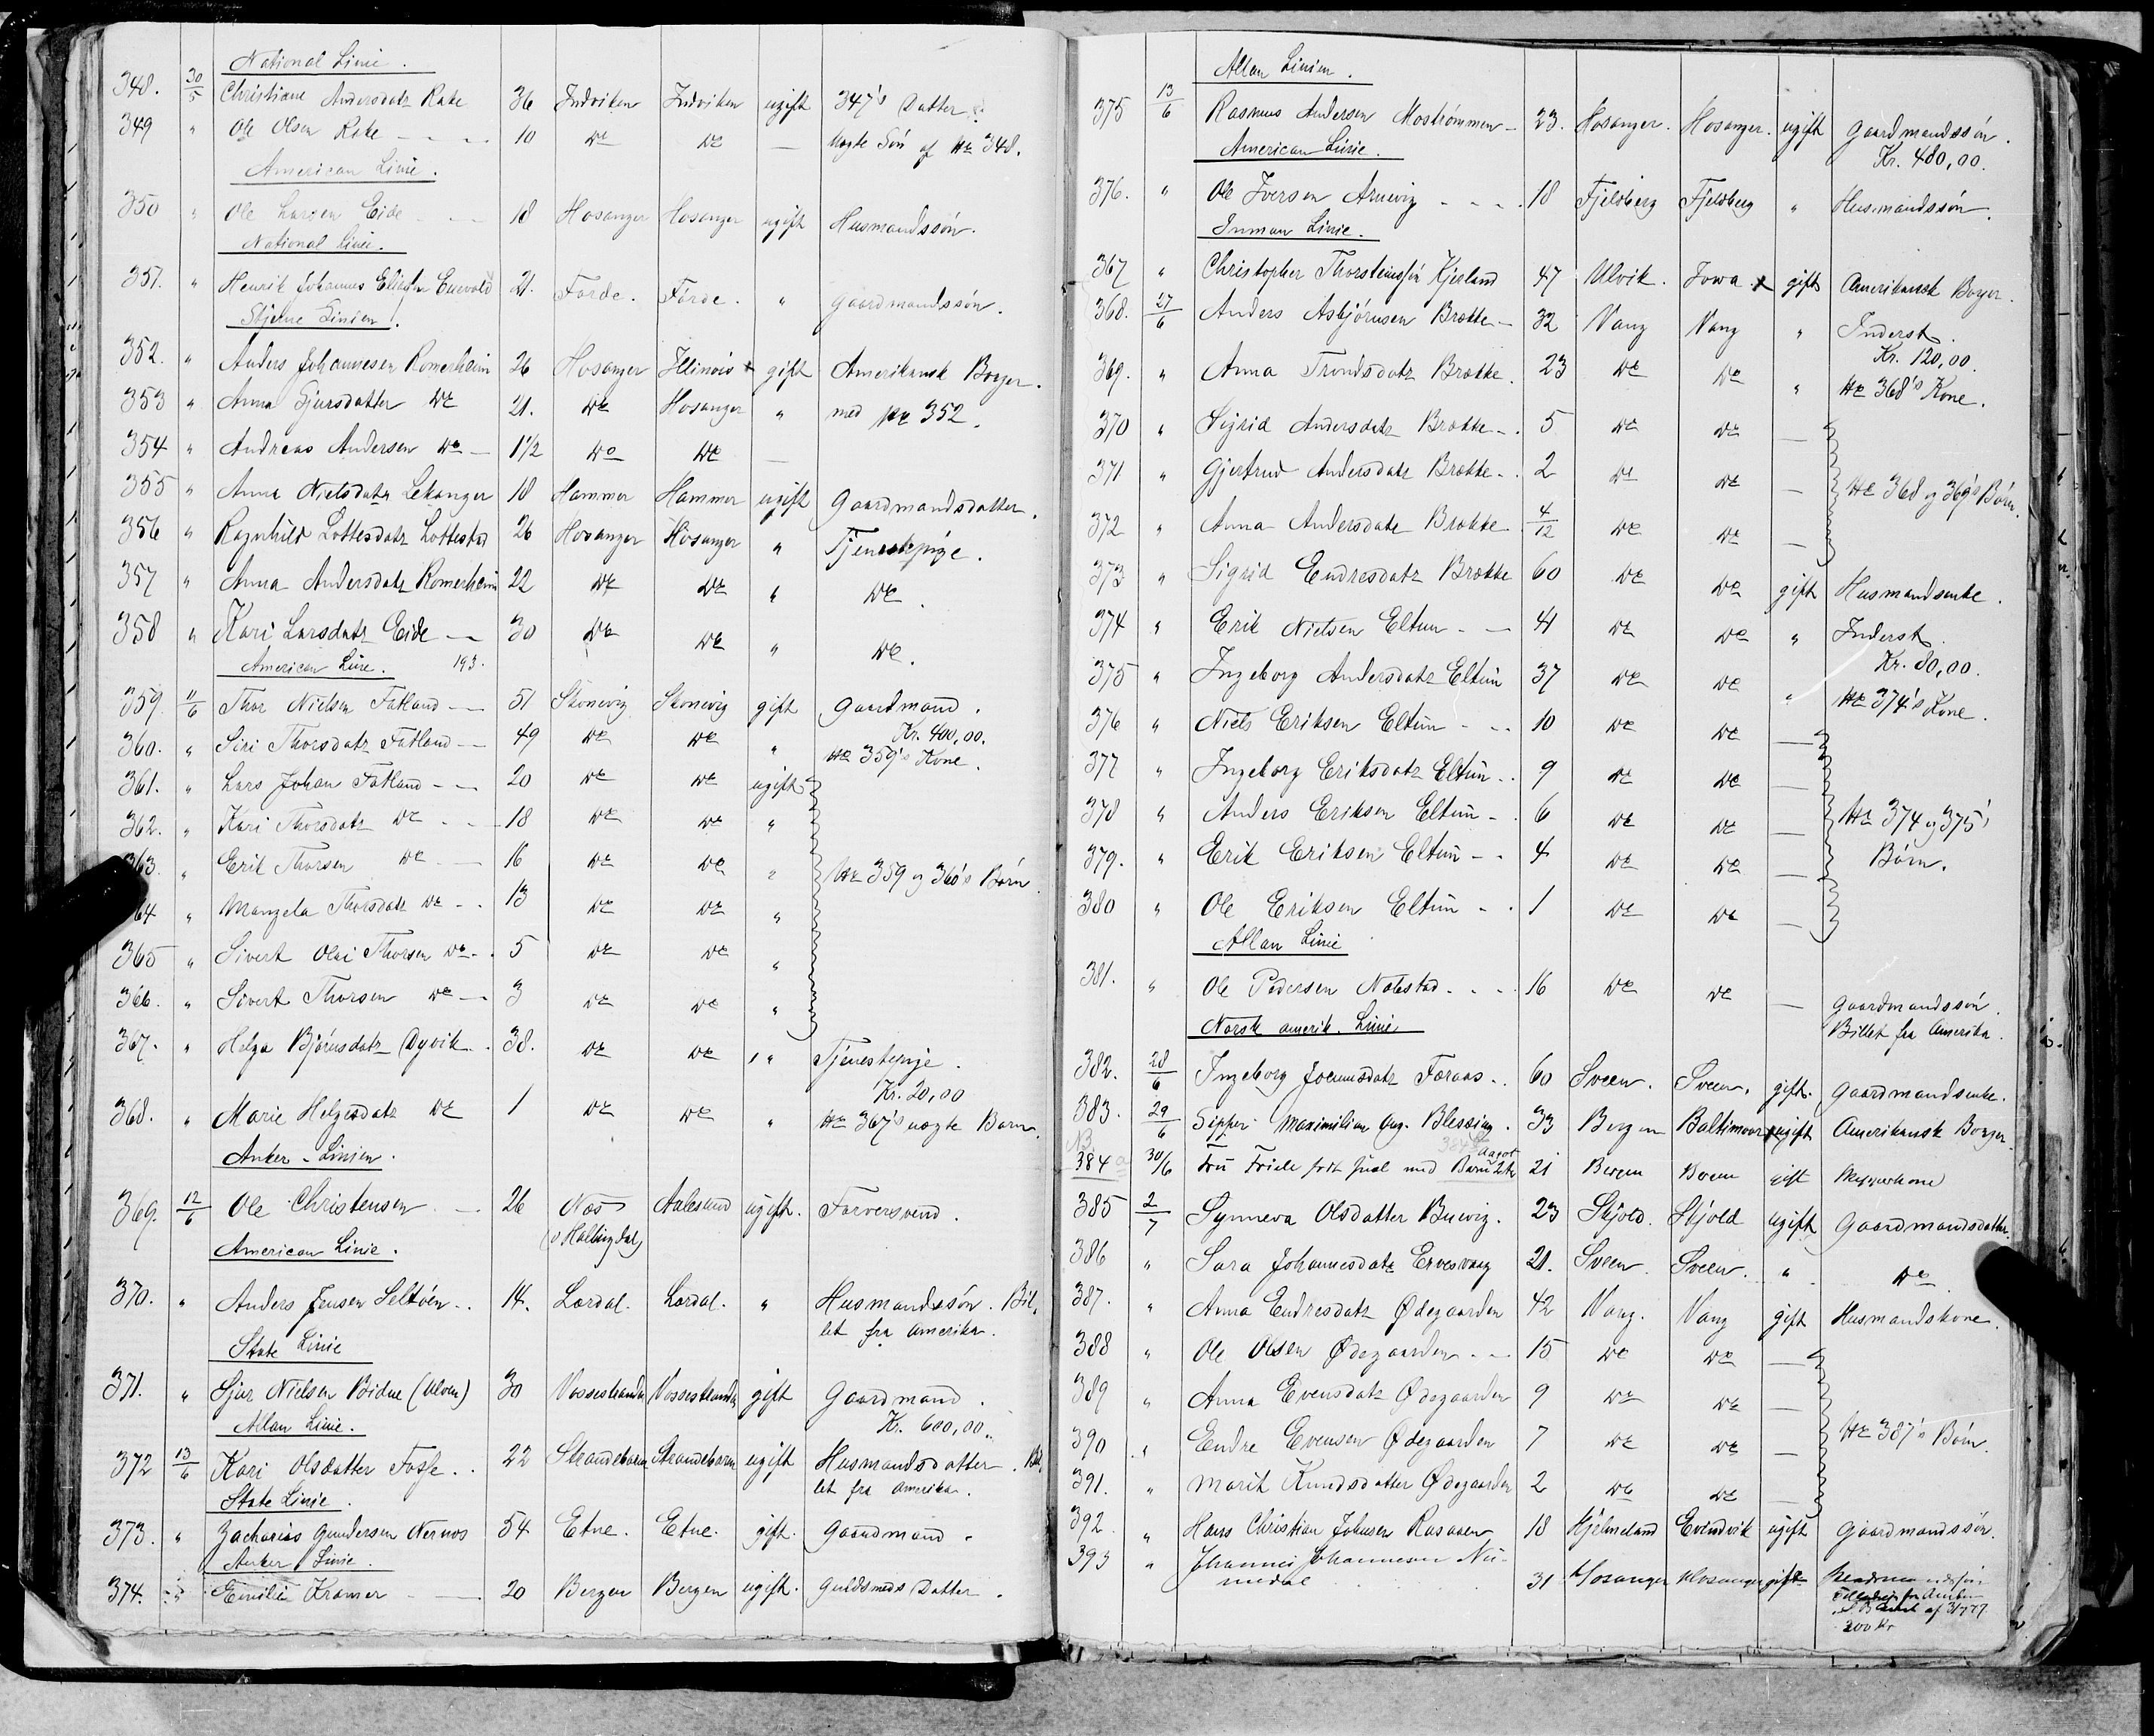 National Linie.
348. 30/5 Christiane Andersdatr Rake 36 Indviken Indviken ugift 347's Datter
349 " Ole Olsen Rake - - - 10 Do Do — Uægte Søn af No 348.
American Linie.
350 " Ole Larsen Eide - - 18 Hosanger Hosanger ugift Husmandssøn.
National Linie.
351. " Henrik Johannes 21. Førde. Førde. " Gaardmandssøn.
Stjerne Linien.
352. " Anders Johannesen Romerheim 26 Hosanger Illinois x gift Amerikansk Borger.
353 " Anna Sjursdatter Do 21. Do Hosanger " med No 352.
354 " Andreas Andersen Do — 1 1/2 Do Do —
355 " Anna Nielsdatr Lekanger 18 Hammer Hammer ugift Gaardmandsdatter.
356 " Ragnhild Lottesdatr Lottestad 26 Hosanger Hosanger " Tjenestepige.
357 " Anna Andersdatr Romerheim 22 Do Do " Do.
358 " Kari Larsdatr Eide — 30 Do Do " Do.
American Linie. 193.
359 11/6 Thor Nielsen Fatland — 51 Skonevig Skonevig gift Gaardmand.
Kr. 400,00.
360. " Siri Thorsdatr Fatland — 49 Do Do " No 359's Kone.
361. " Lars Johan Fatland - — 20 Do Do ugift
362. " Kari Thorsdatr Do - . — 18 Do Do "
363. " Erik Thorsen Do - — 16 Do Do " No 359 og 360's Børn.
364 " Mangela Thorsdatr Do - . 13 Do Do "
365 " Sivert Olai Thorsen Do - . 5 Do Do "
366. " Sivert Thorsen Do — 3 Do Do "
367. " Helga Bjørnsdatr Dyvik . . 38. Do Do " Tjenestepige.
Kr. 20,00
368. " Marie Helgesdatr Do 1 Do Do " No 367's uægte Barn.
Anker-Linien.
369. 12/6 Ole Christensen — 26 Næs Aalesund ugift. Farversvend.
(i Hallingdal)
American Linie.
370. " Anders Jensen Seltøen . . 14. Lærdal. Lærdal. " Husmandssøn. Bil-
let fra Amerika.
State Linie
371. " Sjur Nielsen Bidne (Ulven) 30 Vossestranden Vossestranden gift Gaardmand.
Kr. 600,00.
Allan Linie.
372 13/6 Kari Olsdatter Fosse . . 22 Strandebarm Strandebarm ugift Husmandsdatter. Bil-
let fra Amerika.
State Linie.
373. " Zacharias Gundersen Nernæs 54 Etne. Etne. gift. Gaardmand.
Anker Linie.
374. " Emilie Kramer — 20 Bergen Bergen ugift. Guldsmeds Datter.
Allan Linien.
375 13/6 Rasmus Andersen Mostrømmen - 23. Hosanger. Hosanger. ugift Gaardmandssøn.
Kr. 480,00.
American Linie.
376. " Ole Iversen Arnevig - - - . 18 Fjelberg Fjelberg " Husmandssøn.
Inman Linie.
367 " Christopher Thorsteinssøn Kjerland 47 Ulvik. Iowa. x gift Amerikansk Borger.
368. 27/6 Anders Asbjørnsen Brække - 32 Vang Vang " Inderst.
Kr. 120,00.
369. " Anna Trondsdatr Brække. 23 Do Do " No 368's Kone.
370 " Sigrid Andersdatr Brække - . 5 Do Do —
371 " Gjertrud Andersdatr Brække - . 2 Do Do — No 368 og 369's Børn.
372 " Anna Andersdatr Brække 4/12 Do Do —
373 " Sigrid Endresdatr Brække 60 Do Do gift Husmandsenke.
374 " Erik Nielsen Eltun - — 41 Do Do " Inderst.
Kr. 80,00.
375 " Ingeborg Andersdatr Eltun 37 Do Do " No 374's Kone.
376 " Niels Eriksen Eltun - - - 10 Do Do —
377 " Ingeborg Eriksdatr Eltun . . 9 Do Do —
378 " Anders Eriksen Eltun - . 6 Do Do — No 374 og 375's
379. " Erik Eriksen Eltun - - 4 Do Do — Børn.
380 " Ole Eriksen Eltun - . 1 Do Do —
Allan Linie
381. " Ole Pedersen Nolestad - - - 16 Do Do — Gaardmandssøn.
Billet fra Amerika.
Norsk amerik. Linie
382. 28/6 Ingeborg Joensdatr Faraas . . 60 Sveen. Sveen. gift. Gaardmandsenke.
383. 29/6 Sipper Maximilian Aug. Blessing. 33 Bergen Baltimoor x ugift Amerikansk Borger
NB
384a 30/6 Fru Friele født Juel med Barn Aagot 2 Ar 21 Bergen Bergen gift
385 2/7 Synneva Olsdatter Buevig. 23 Skjold. Skjold ugift Gaardmandsdatter.
386 " Sara Johannesdatr Ervesvaag 21. Sveen Sveen. " Do
387. " Anna Endresdatr Ødegaarden 42 Vang. Vang gift Husmandskone.
388 " Ole Olsen Ødegaarden - — 15 Do Do —
389 " Anna Evensdatr Ødegaarden 9 Do Do —
390 " Endre Evensen Ødegaarden 7 Do Do — No 387's Børn.
391. " Marit Knudsdatter Ødegaarden 2 Do Do —
392 " Hans Christian Johnsen Rasaaen 18 Hjelmeland Evindvik ugift Gaardmandssøn.
393 " Johannes Johannesen Nu-
medal 31 Hosanger Hosanger gift
af 31/7 77
200 Kr